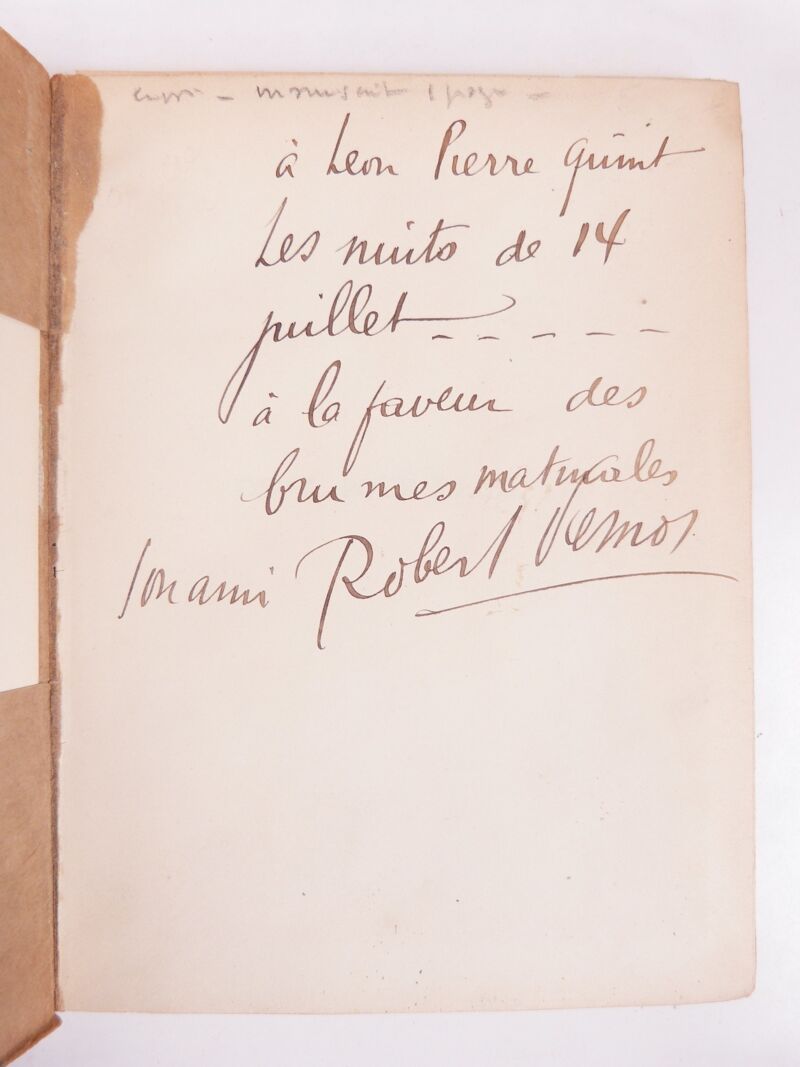 envoi - manuscrit 1 page -
à Leon Pierre Quint
Les nuits de 14
juillet _ _ _ _ _
à la faveur des
brumes matinales
son ami Robert Desnos